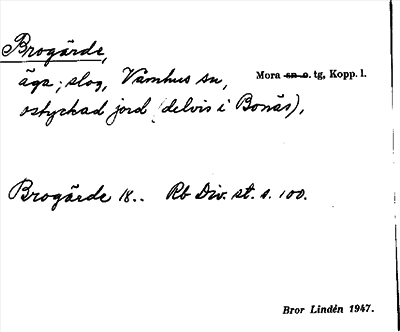 Brogärde,
äga; slog, Våmhus sn, Mora sn o. tg, Kopp. l.
ostyckad jord (delvis i Bonäs),
Brogärde 18.. Rb Div. st. s. 100.
Bror Lindén 1947.